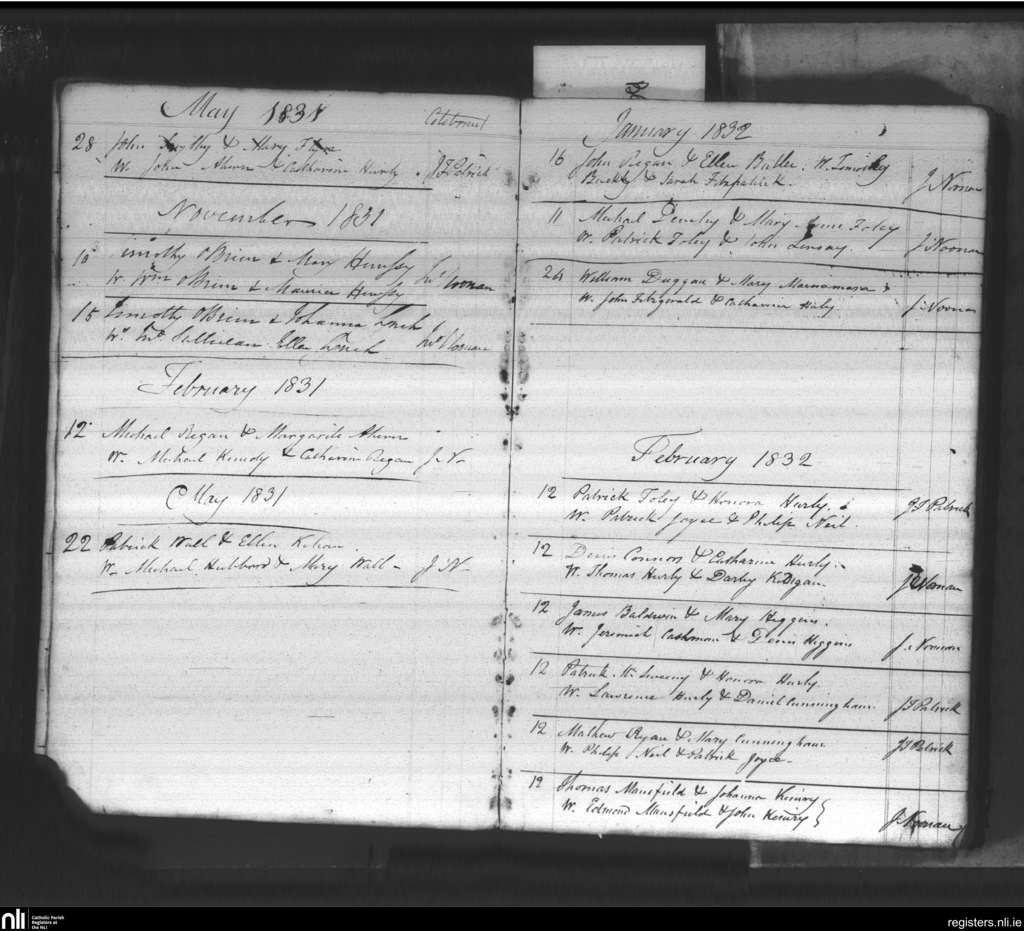 May 1831
Celebrant
28 John & Mary
W. John Ahern & Catharine Hurly. J FPatrick
November 1831
10 Timothy OBrien & Mary
W Wm OBrien & Maurice Jno Noonan
15 Timothy OBrien & Johanna Lynch
Ws. Sullivan Ellen Lynch Jno Noonan
February 1831
12 Michael Regan & Margarite Ahern
W. Michael Kenedy & Catharine Regan J N
May 1831
22 Patrick Wall & Ellen
W. Michael Hubbord & Mary Wall J N
January 1832
16 John Regan & Ellen Butler. W. Timothy
Buckly & Sarah Fitzpatrick. J Noonan
11 Michael & Mary Anne Foley
W. Patrick Foley & John Linsay. J. Noonan
24 William Duggan & Mary Macnamara
W. John Fitzgerald & Catharine J. Noonan
February 1832
12 Patrick Foley & Honora Hurly.
W. Patrick Joyce & Philip Neil. J F Patrick
12 Denis Connors & Catharine Hurly.
W. Thomas Hurly & Darby J Noonan
12 James Baldwin & Mary Higgins.
W. Jeremiah Cashman & Denis Higgins J. Noonan
12 Patrick Mc Sweeny & Honora Hurly.
W. Lawrence Hurly & Daniel Cunningham. J F Patrick
12 Mathew Ryan & Mary Cunningham
W. Philip Neil & Patrick Joyce. J F Patrick
12 Thomas Mansfield & Johanna Kenry
W. Edmond Mansfield & John Kenry J. Noonan
nli
Catholic Parish
Registers at
the NLI
registers.nli.ie